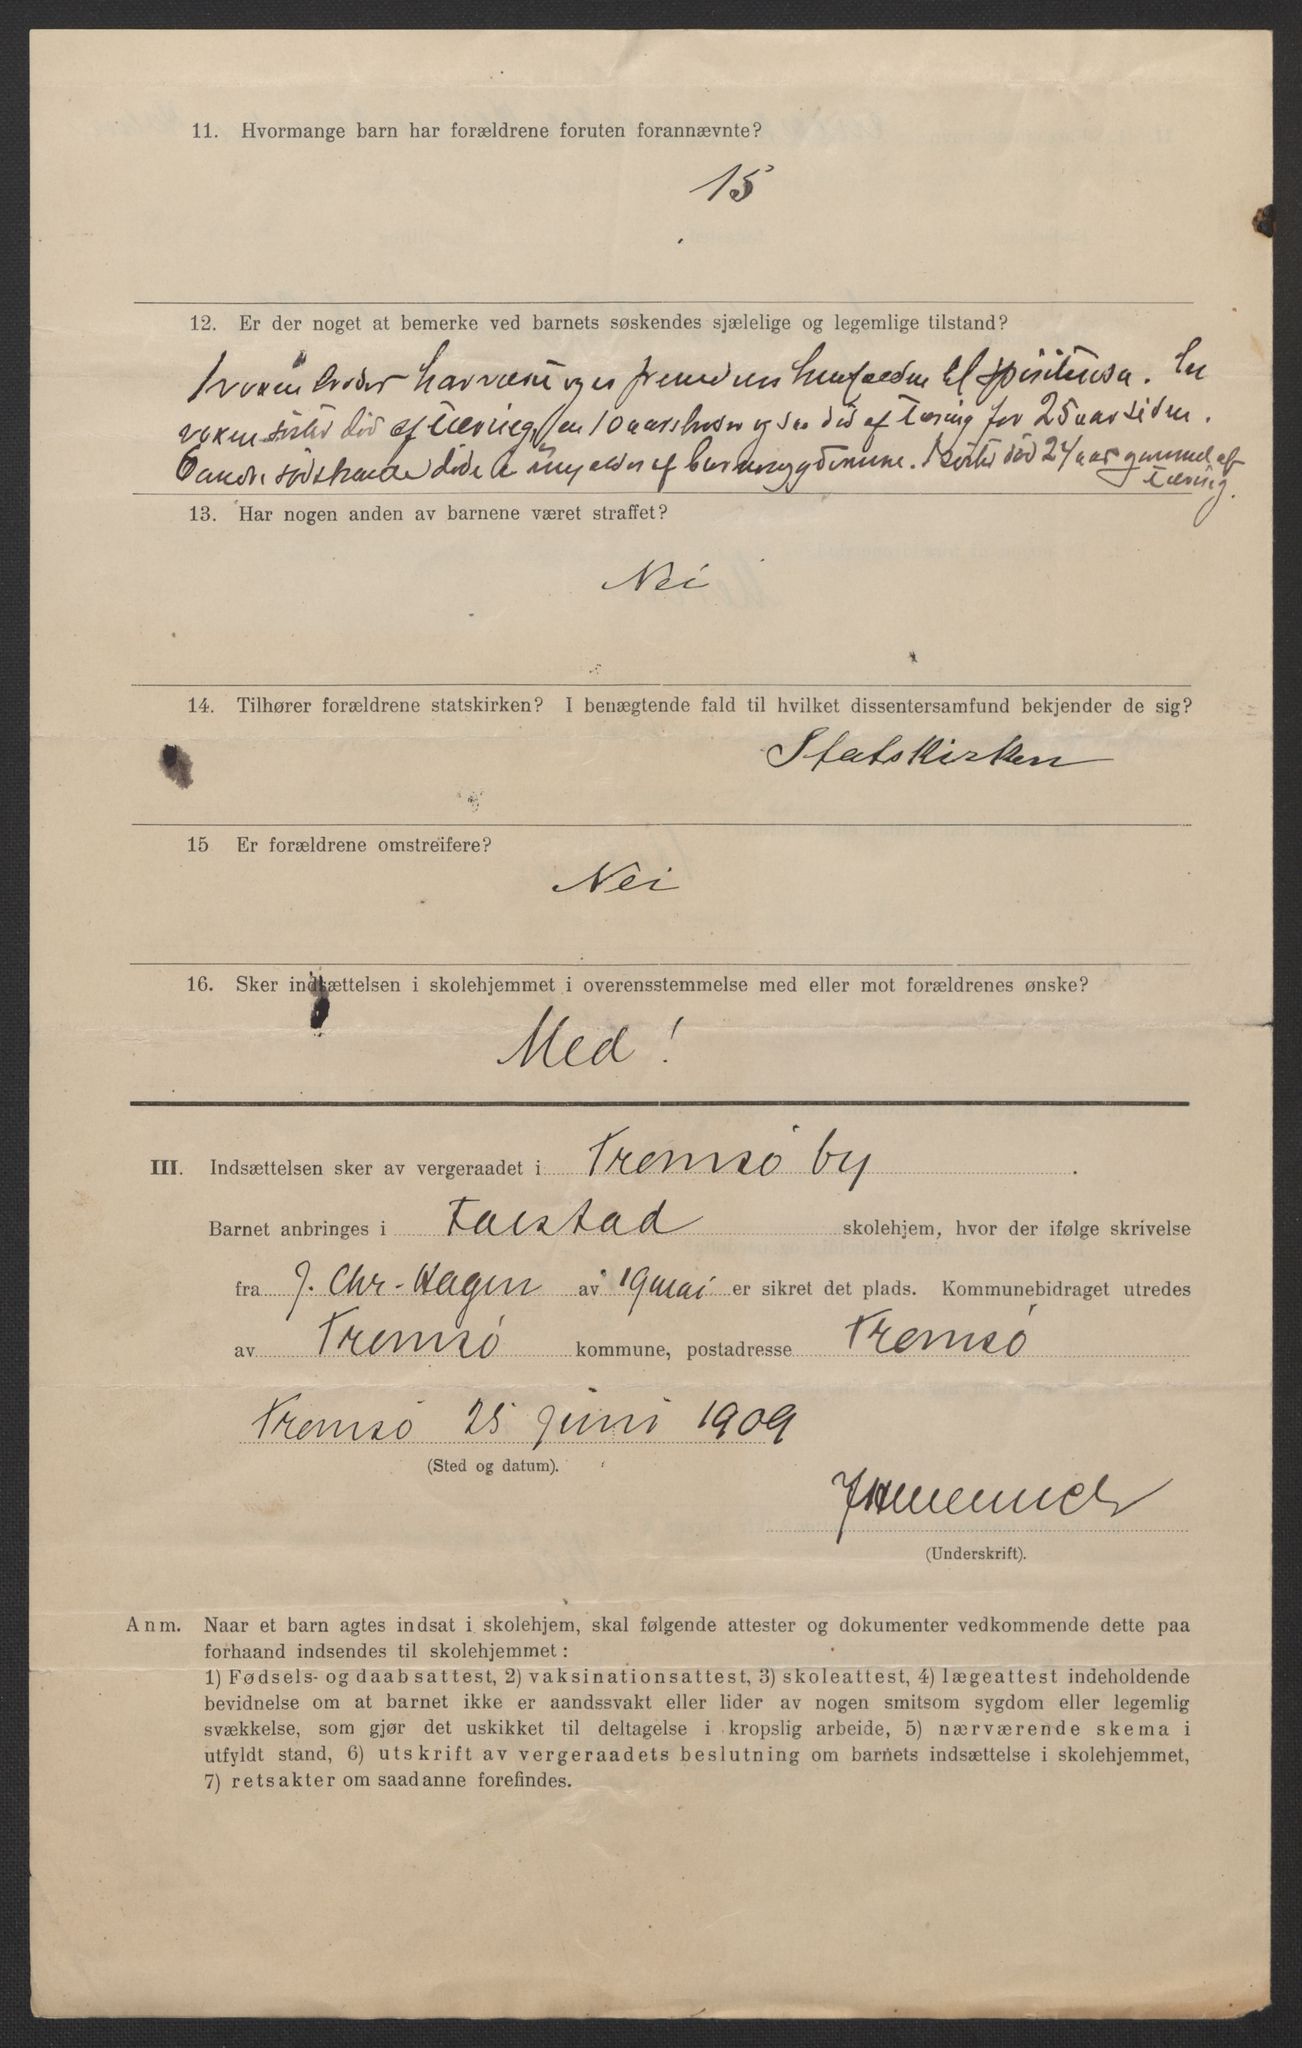 11. Hvormange barn har forældrene foruten forannævnte?
15
12. Er der noget at bemerke ved barnets søskendes sjælelige og legemlige tilstand?
1 voxen broder har været og er fremdeles henfalden til spirituosa. En
voxen søster död af tæring, en 10 aars broder ogsaa död af tæring for 25 aar siden.
6 andre södskende döde i ung alder af barnesygdomme. 1 söster död 24 aar gammel af
tæring.
13. Har nogen anden av barnene været straffet?
Nei
14. Tilhører forældrene statskirken? I benægtende fald til hvilket dissentersamfund bekjender de sig?
Statskirken
15 Er forældrene omstreifere?
Nei
16. Sker indsættelsen i skolehjemmet i overensstemmelse med eller mot forældrenes ønske?
Med!
III. Indsættelsen sker av vergeraadet i Tromsö by
Barnet anbringes i Falstad skolehjem, hvor der ifølge skrivelse
fra J. Chr. Hagen av 19 mai er sikret det plads. Kommunebidraget utredes
av Tromsö kommune, postadresse Tromsö
Tromsö 25 juni 1909
(Sted og datum).
(Underskrift).
Anm. Naar et barn agtes indsat i skolehjem, skal følgende attester og dokumenter vedkommende dette paa
forhaand indsendes til skolehjemmet:
1) Fødsels- og daabsattest, 2) vaksinationsattest, 3) skoleattest, 4) lægeattest indeholdende
bevidnelse om at barnet ikke er aandssvakt eller lider av nogen smitsom sygdom eller legemlig
svækkelse, som gjør det uskikket til deltagelse i kropslig arbeide, 5) nærværende skema i
utfyldt stand, 6) utskrift av vergeraadets beslutning om barnets indsættelse i skolehjemmet,
7) retsakter om saadanne forefindes.